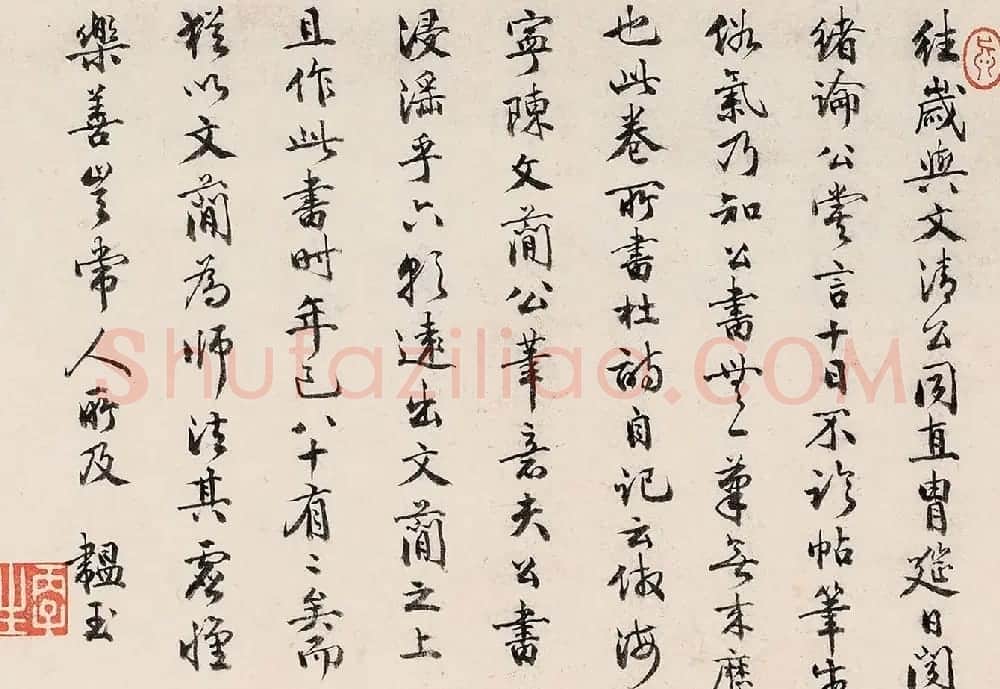 往歲與文清公同直胄筵日闻
緒論公嘗言十日不臨帖筆
俗氣乃知公書無一筆無來歷
也此卷所書杜詩自記云倣海
寧陳文簡公筆意夫公書
浸淫乎六朝遠出文簡之上
且作此書時年已八十有二矣而
猶以文簡為師法其虛懷
樂善豈常人所及 韞玉
丙子
Shufaziliao.COM